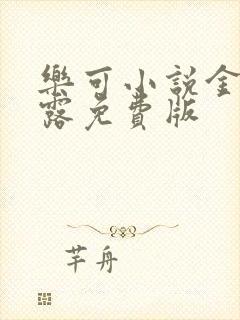 樂可小說全
露免費版
芊舟